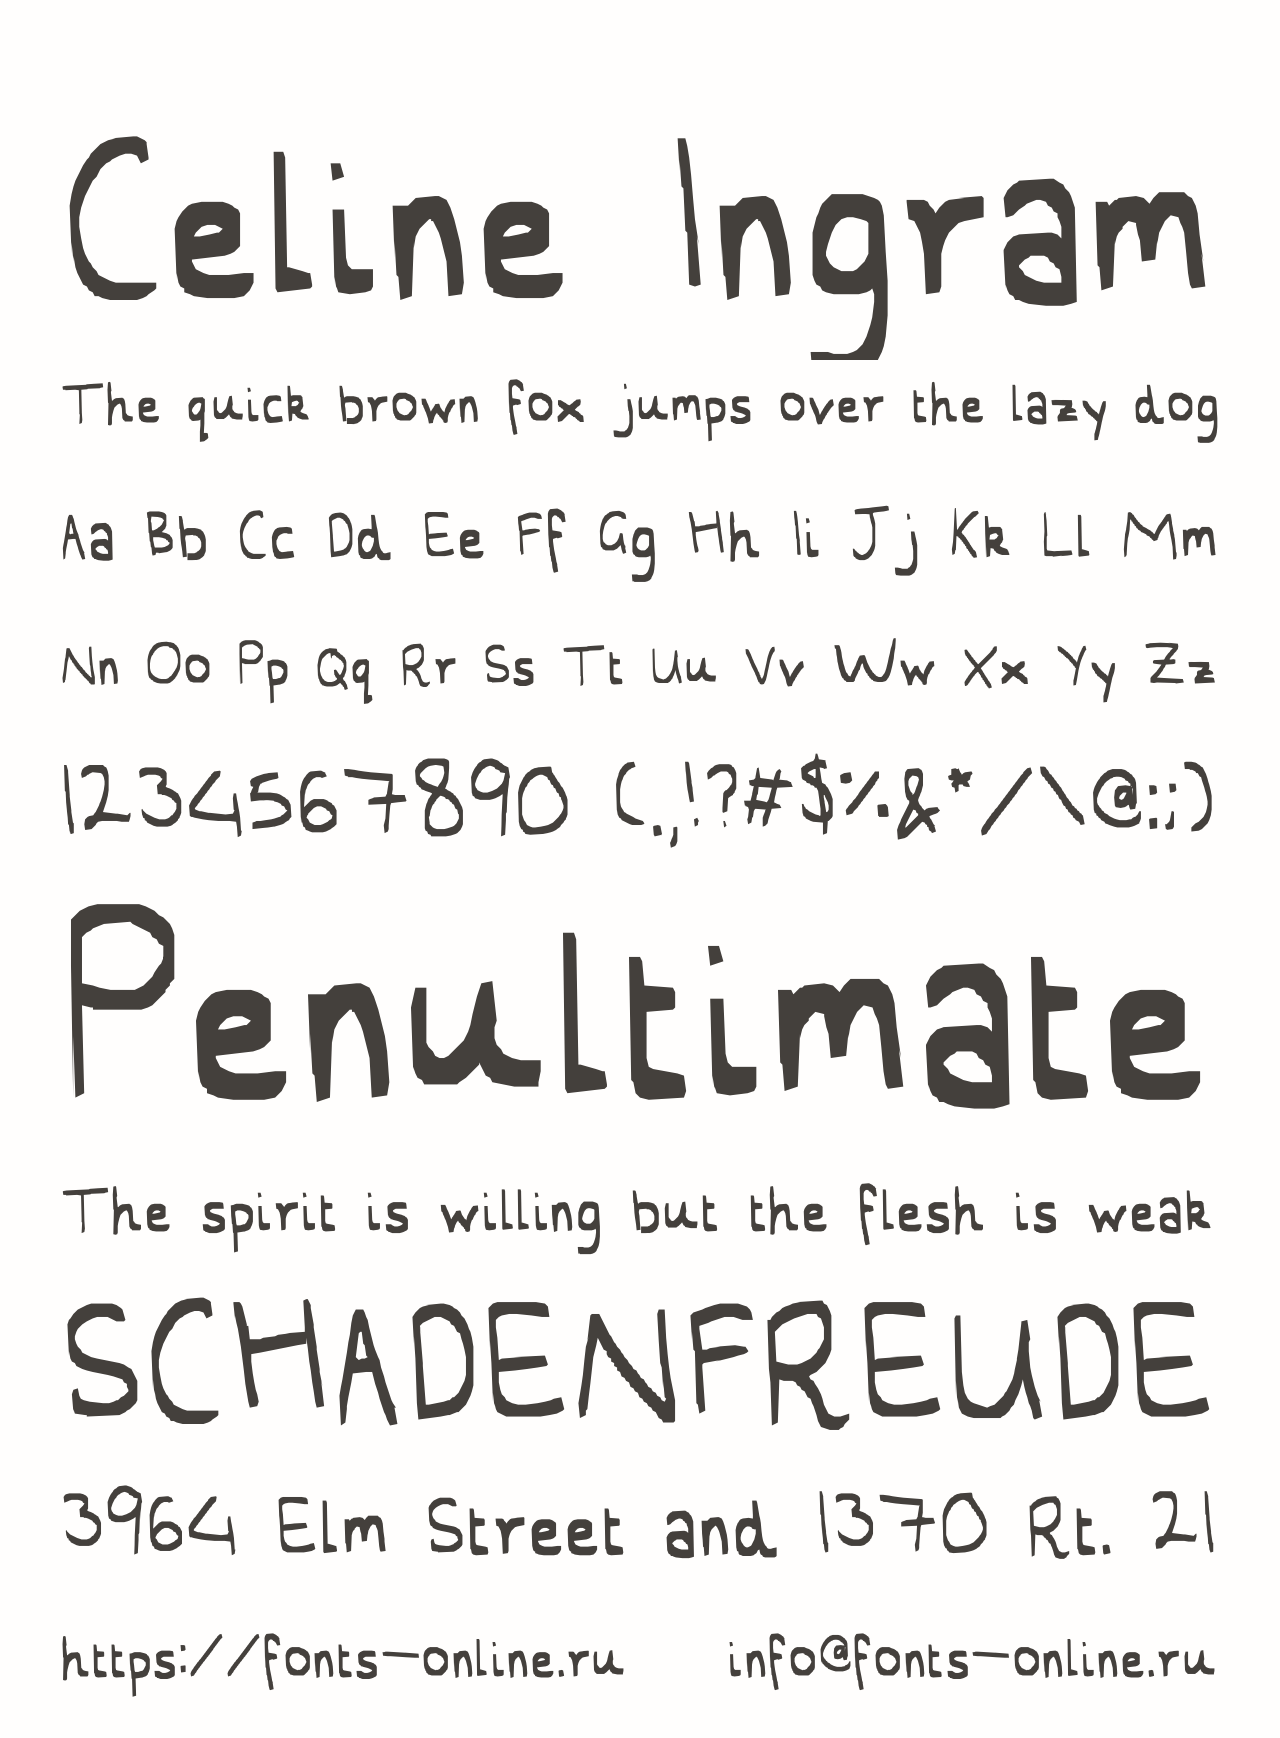 Celine Ingram
The quick brown fox jumps over the lazy dog
Aa Bb Cc Dd Ee Ff Gg Hh Ii Jj Kk Ll Mm
Nn Oo Pp Qq Rr Ss Tt Uu Vv Ww Xx Yy Zz
1234567890 (.,!?#$%&*/\@:;)
Penultimate
The spirit is willing but the flesh is weak
SCHADENFREUDE
3964 Elm Street and 1370 Rt. 21
https://fonts-online.ru info@fonts-online.ru